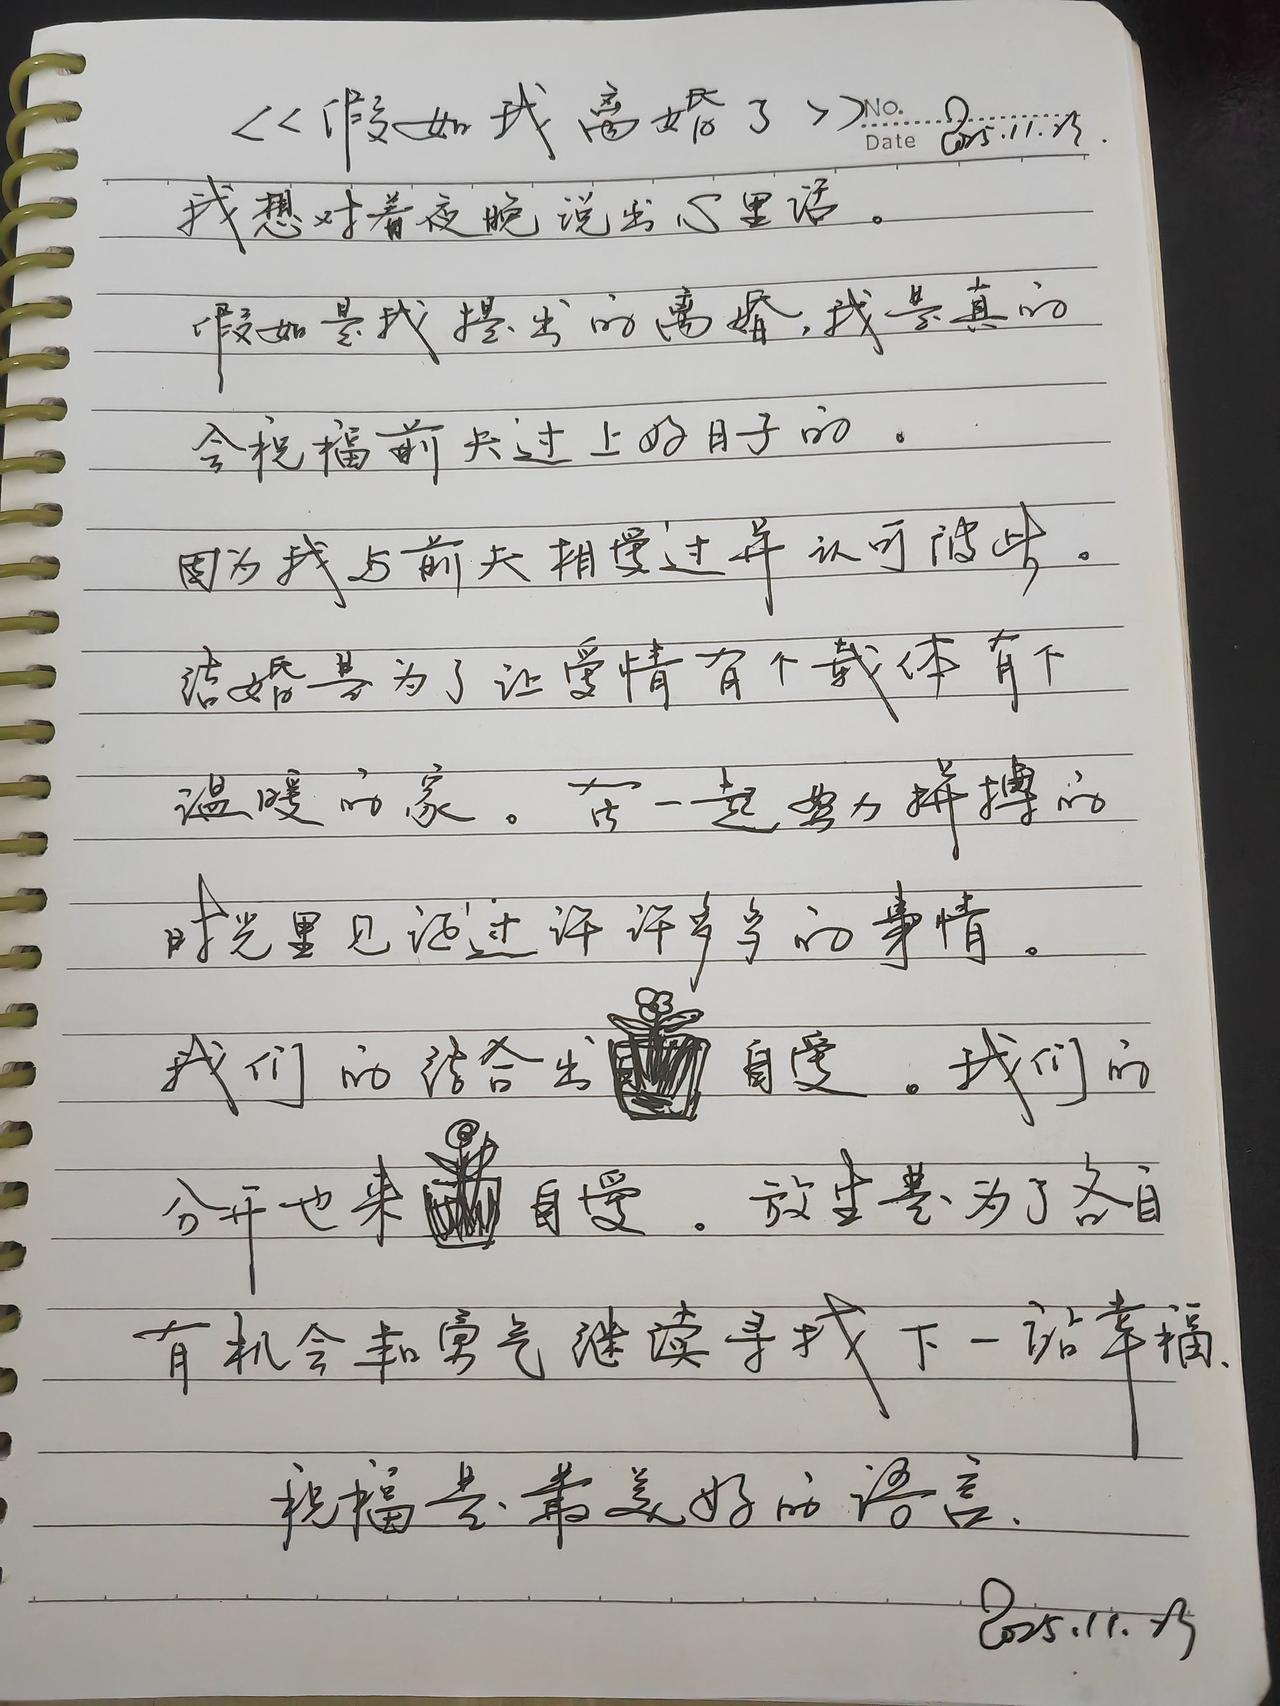 <<假如我离婚了>>
No.
Date 2025.11.
我想对着夜晚说出心里话。
假如是我提出的离婚,我是真的
会祝福前夫过上好日子的。
因为我与前夫相爱过并认可彼此。
结婚是为了让爱情有个载体有个
温暖的家。在一起努力拼搏的
时光里见证过许许多多的事情。
我们的结合出自爱。我们的
分开也来自爱。放生是为了各自
有机会和勇气继续寻找下一站幸福.
祝福是最美好的语言.
2025.11.